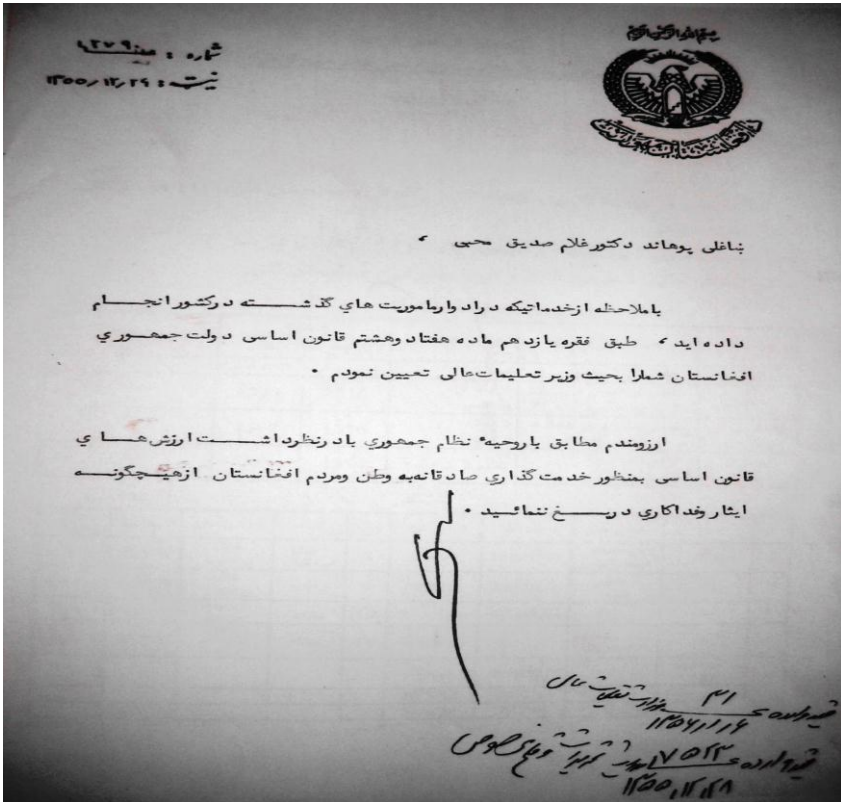 بسم الله الرحمن الرحيم
شماره :
نیټه : ۱۳۵۵/۱۲/۲۶
ښاغلی پوهاند دکتور غلام صدیق محبی ،
باملاحظه از خدماتیکه در ادوار ماموریت های گذشته در کشور انجام
داده اید ، طبق فقره یازدهم ماده هفتاد وهشتم قانون اساسی دولت جمهوری
افغانستان شمارا بحیث وزیر تعلیمات عالی تعیین نمودم ۰
ارزومندم مطابق باروحیهٔ نظام جمهوری بادرنظرداشت ارزش های
قانون اساسی بمنظور خدمت گذاری صادقانه به وطن ومردم افغانستان ازهیچگونه
ایثار وفداکاری دریغ ننمائید ۰
۴۱
وزارت تعلیمات عالی
۱۳۵۶/۱/۶
۱۷۵۲۳
۱۳۵۵/۱۲/۲۸